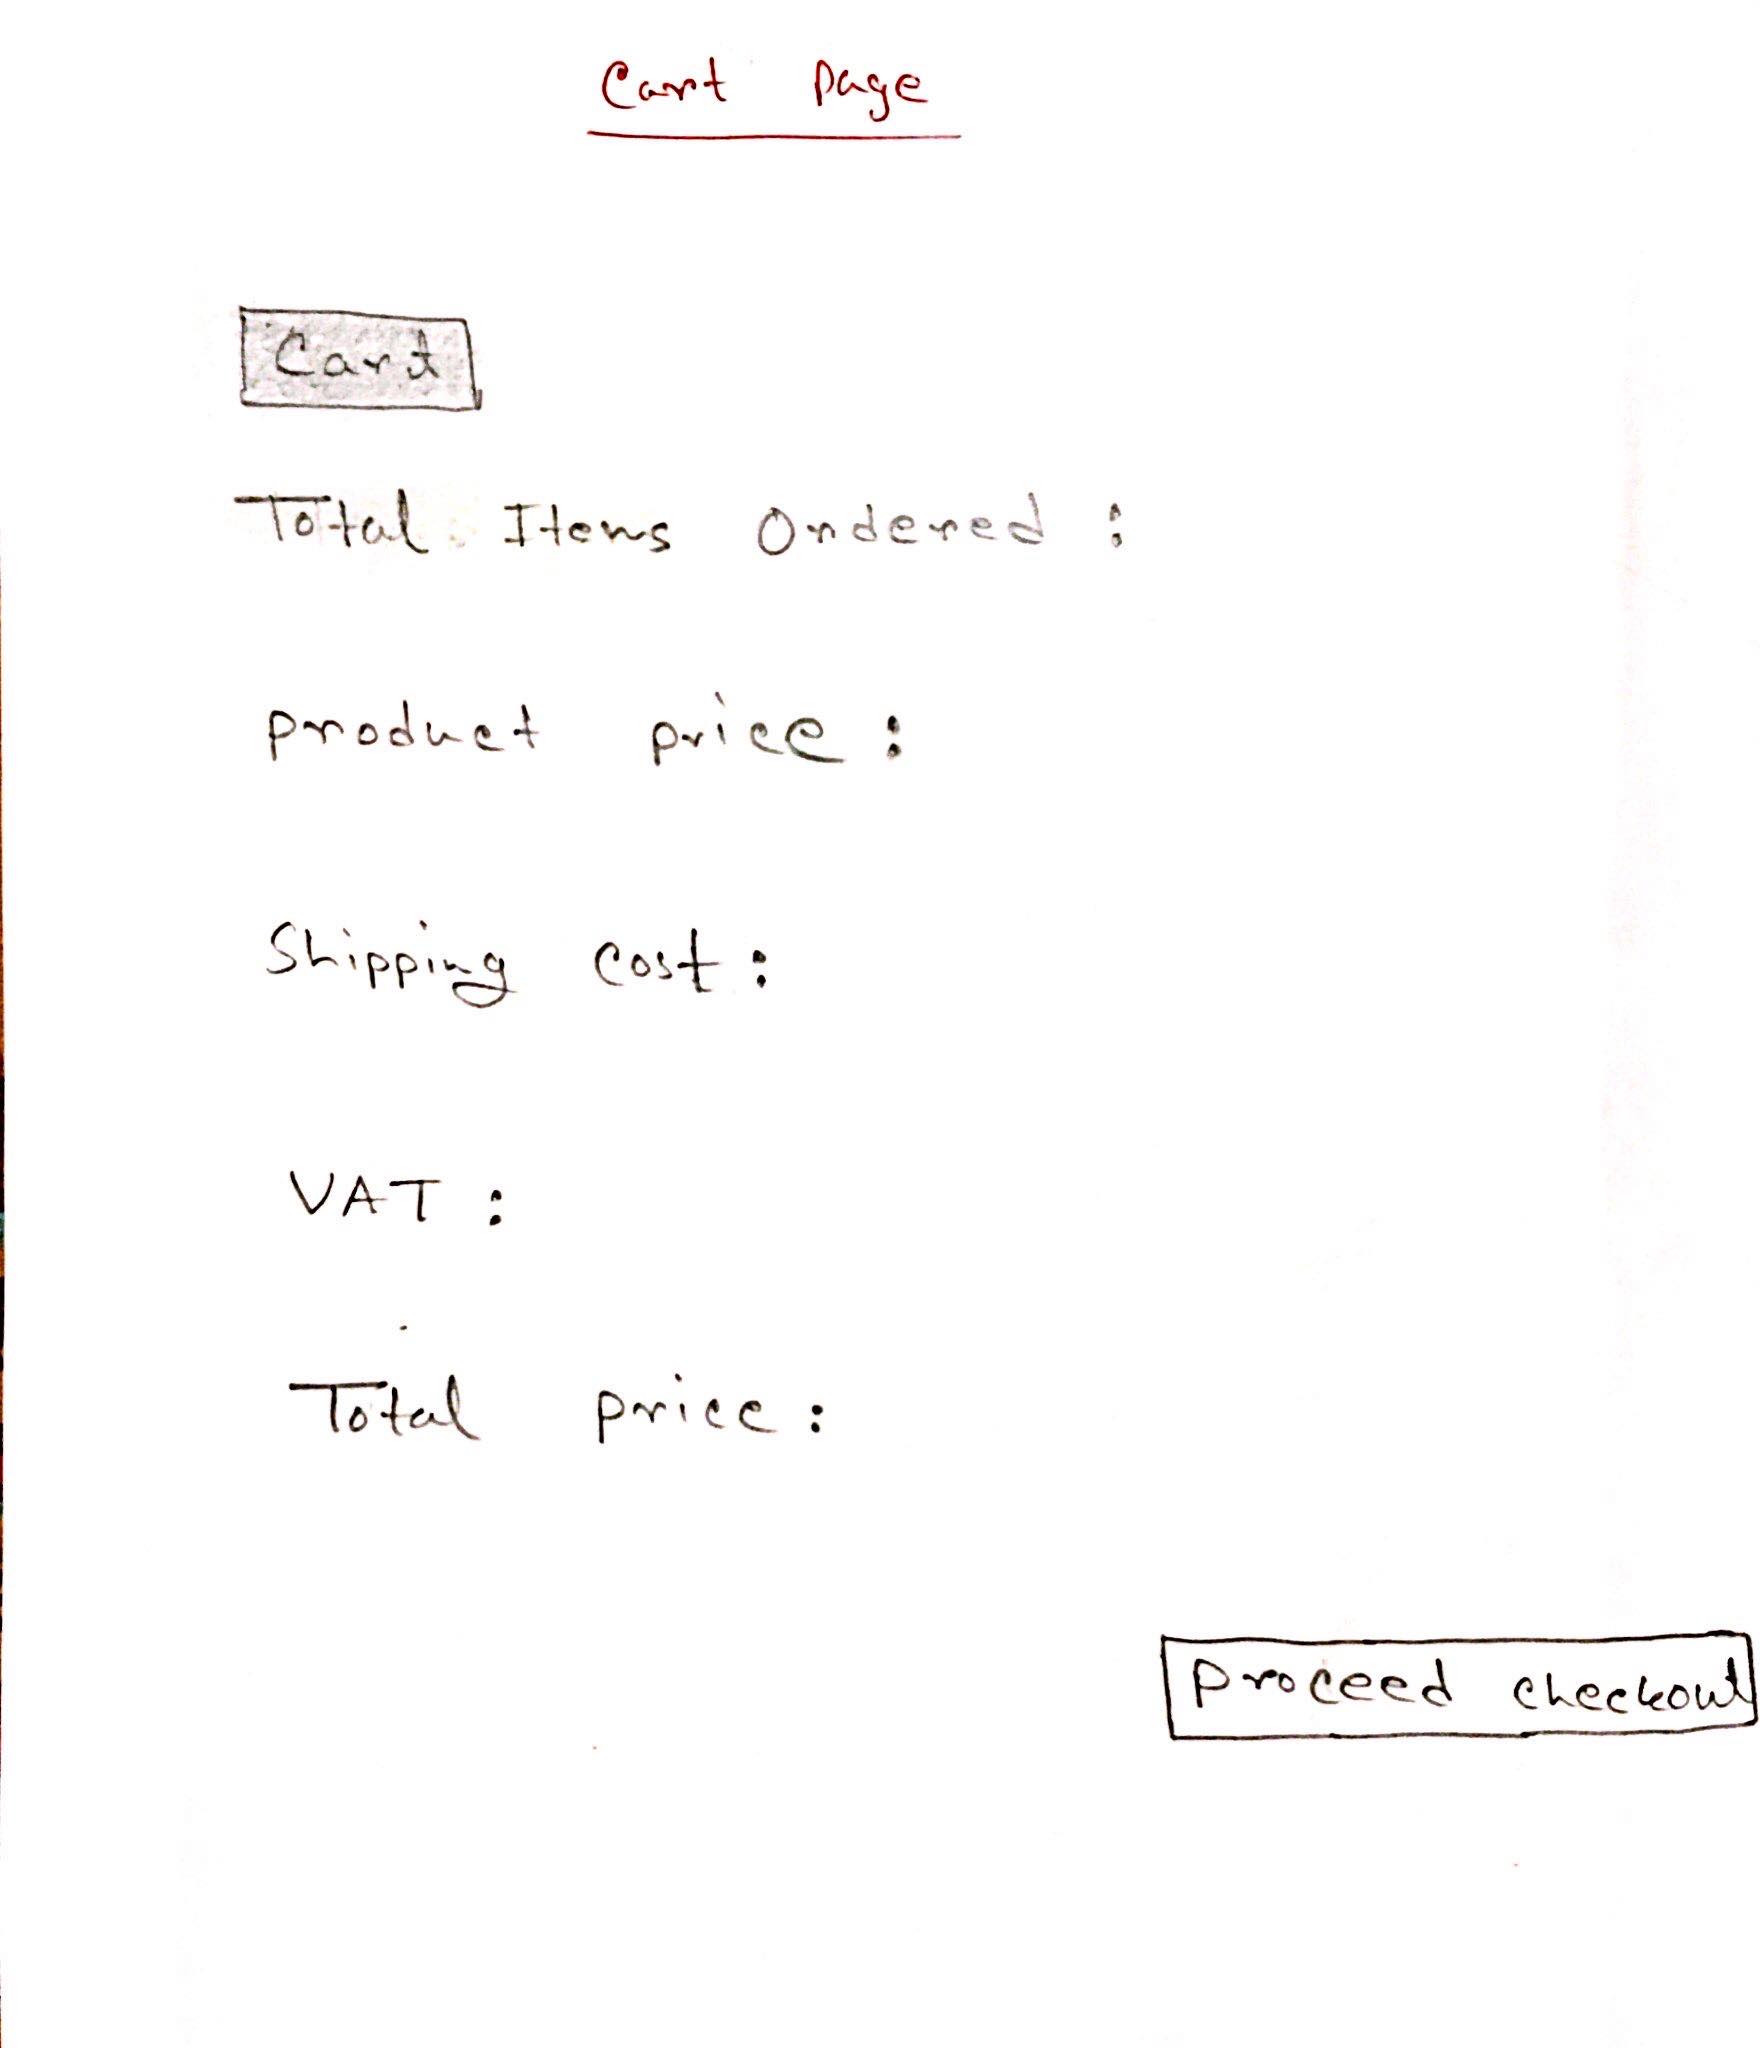 Cart Page
Cart
Total Items Ordered :
product price :
Shipping Cost :
VAT :
Total price :
Proceed checkout